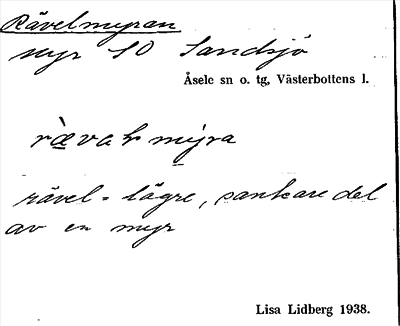 Rävelmyran
myr SO Sandsjö
Åsele sn o. tg, Västerbottens l.
rävel = lägre, sankare del
av en myr
Lisa Lidberg 1938.